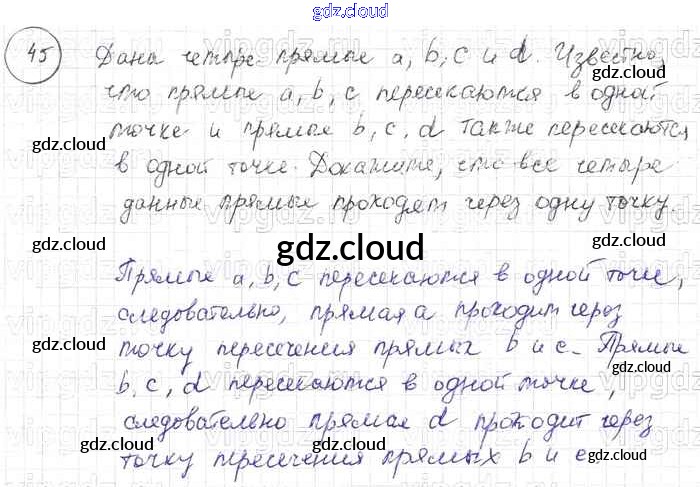 gdz.cloud
45 Дана четыре прямые a, b, c и d. Известно,
gdz.cloud
что прямые a, b, c пересекаются в одной
точке и прямые b, c, d также пересекаются
gdz.cloud
в одной точке. Докажите, что все четыре
данные прямые проходят через одну точку
gdz.cloud
gdz.cloud
gdz.cloud
Прямые a, b, c пересекаются в одной точке,
gdz.cloud
следовательно, прямая a проходит через
gdz.cloud
точку пересечения прямых b и c. Прямые
gdz.cloud
b, c, d пересекаются в одной точке,
gdz.cloud
следовательно прямая d проходит через
gdz.cloud
gdz.cloud
точку пересечения прямых b и c.
gdz.cloud